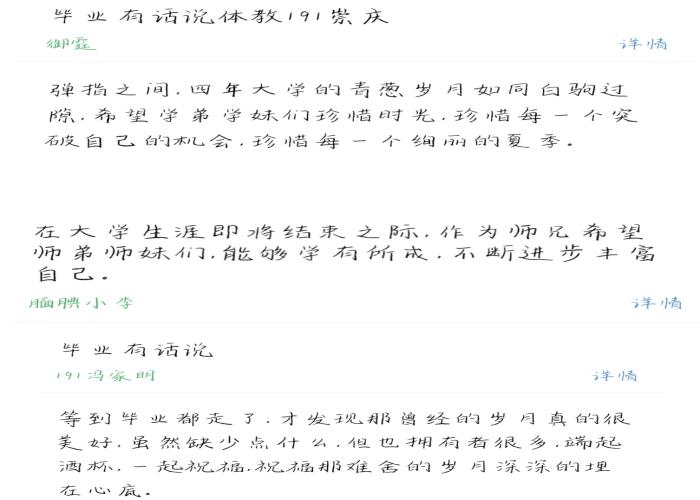 毕业有话说体教191崇庆
御霆
详情
弹指之间,四年大学的青葱岁月如同白驹过
隙,希望学弟学妹们珍惜时光,珍惜每一个突
破自己的机会,珍惜每一个绚丽的夏季。
在大学生涯即将结束之际,作为师兄希望
师弟师妹们,能够学有所成,不断进步丰富
自己。
腼腆小李
详情
毕业有话说
191冯家明
详情
等到毕业都走了,才发现那曾经的岁月真的很
美好,虽然缺少点什么,但也拥有着很多,端起
酒杯,一起祝福,祝福那难舍的岁月深深的埋
在心底。